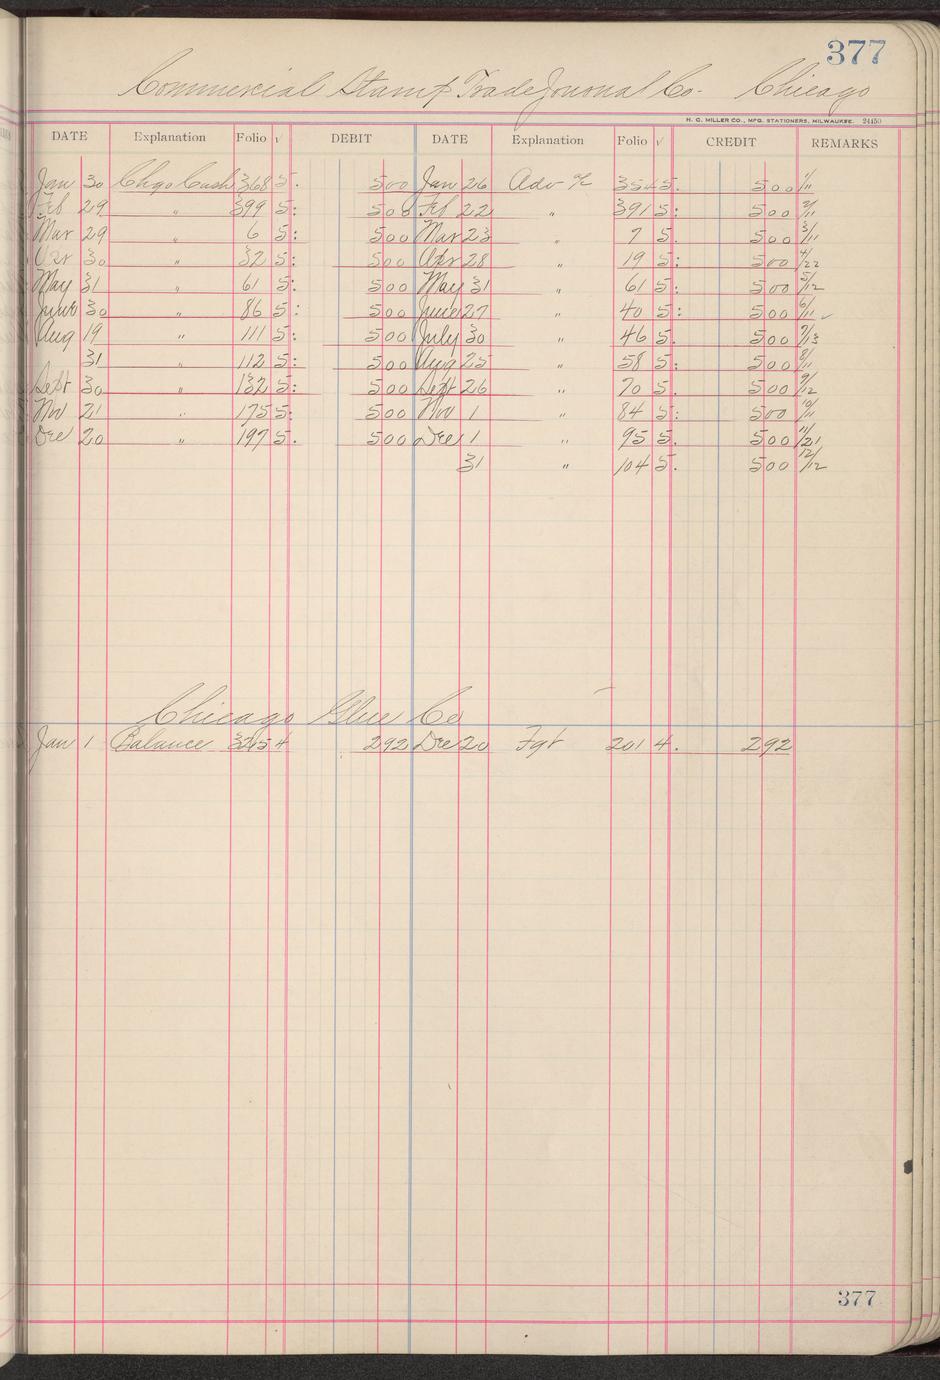 377
Commercial Stamp Trade Journal Co. Chicago
H. G. MILLER CO., MFG. STATIONERS, MILWAUKEE. 24450
DATE Explanation Folio √ DEBIT DATE Explanation Folio √ CREDIT REMARKS
Jan 30 Chgo Cash 368 5. 500 Jan 26 Adv 354 5. 500 1/11
Feb 29 " 399 5: 500 Feb 22 " 391 5: 500 2/11
Mar 29 " 6 5: 500 Mar 23 " 7 5. 500 3/11
Apr 30 " 32 5: 500 Apr 28 " 19 5: 500 4/22
May 31 " 61 5: 500 May 31 " 61 5: 500 5/12
June 30 " 86 5: 500 June 27 " 40 5: 500 6/11 ✓
Aug 19 " 111 5: 500 July 30 " 46 5. 500 7/13
31 " 112 5: 500 Aug 25 " 58 5: 500 8/11
Sept 30 " 132 5: 500 Sept 26 " 70 5. 500 9/12
Nov 21 " 175 5: 500 Nov 1 " 84 5: 500 10/11
Dec 20 " 197 5. 500 Dec 1 " 95 5. 500 11/21
31 " 104 5. 500 12/12
Chicago Glue Co
Jan 1 Balance 4 292 Dec 20 Fgt 201 4. 292
377